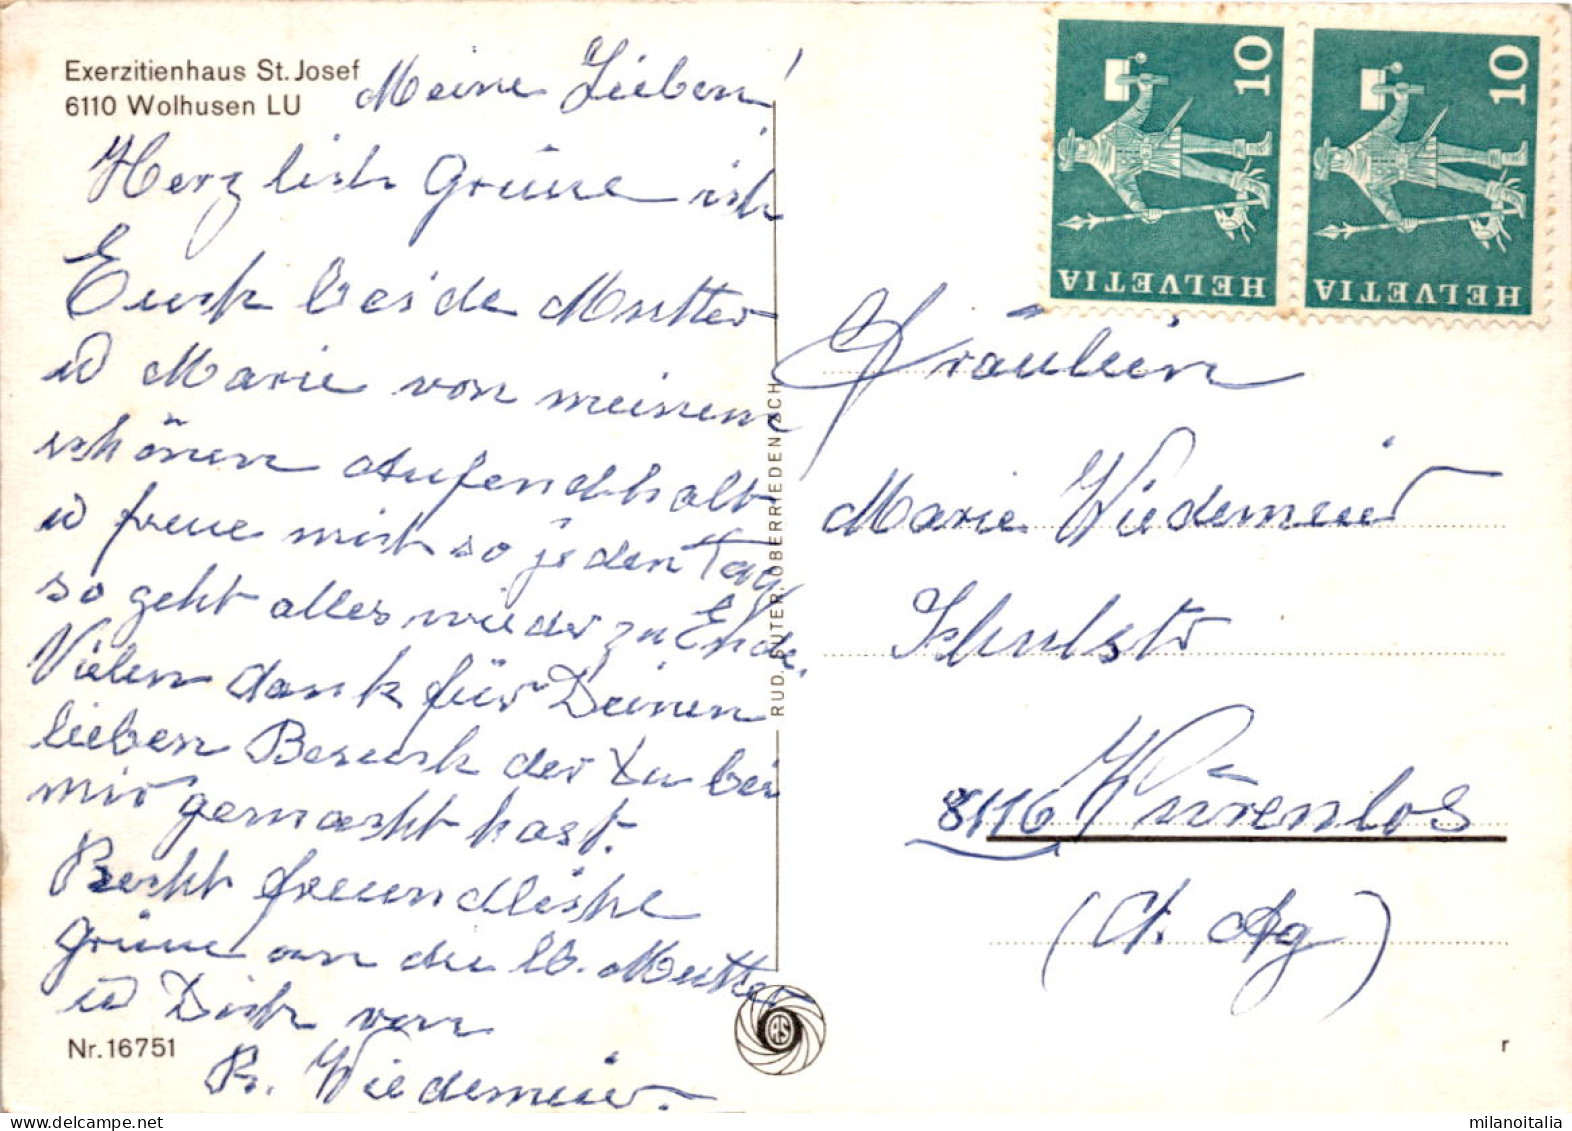 Exerzitienhaus St. Josef
6110 Wolhusen LU
Meine Lieben!
Herzlich Grüsse ich
Euch beide Mutter
u Marie von meinem
schönen Aufendhhalt
u freue mich so jeden Tag,
so geht alles wieder zu Ende.
Vielen dank für Deinen
lieben Besuch der Du bei
mir gemacht hast.
Recht freundliche
Grüsse an die lb. Mutter
u Dich von
R. Wiedemeier.
Nr. 16751
RUD. SUTER, OBERRIEDEN ZCH
RS
HELVETIA 10
HELVETIA 10
Fräulein
Marie Wiedemeier
Schulstr
8116 Würenlos
(Kt. Ag)
r
milanoitalia